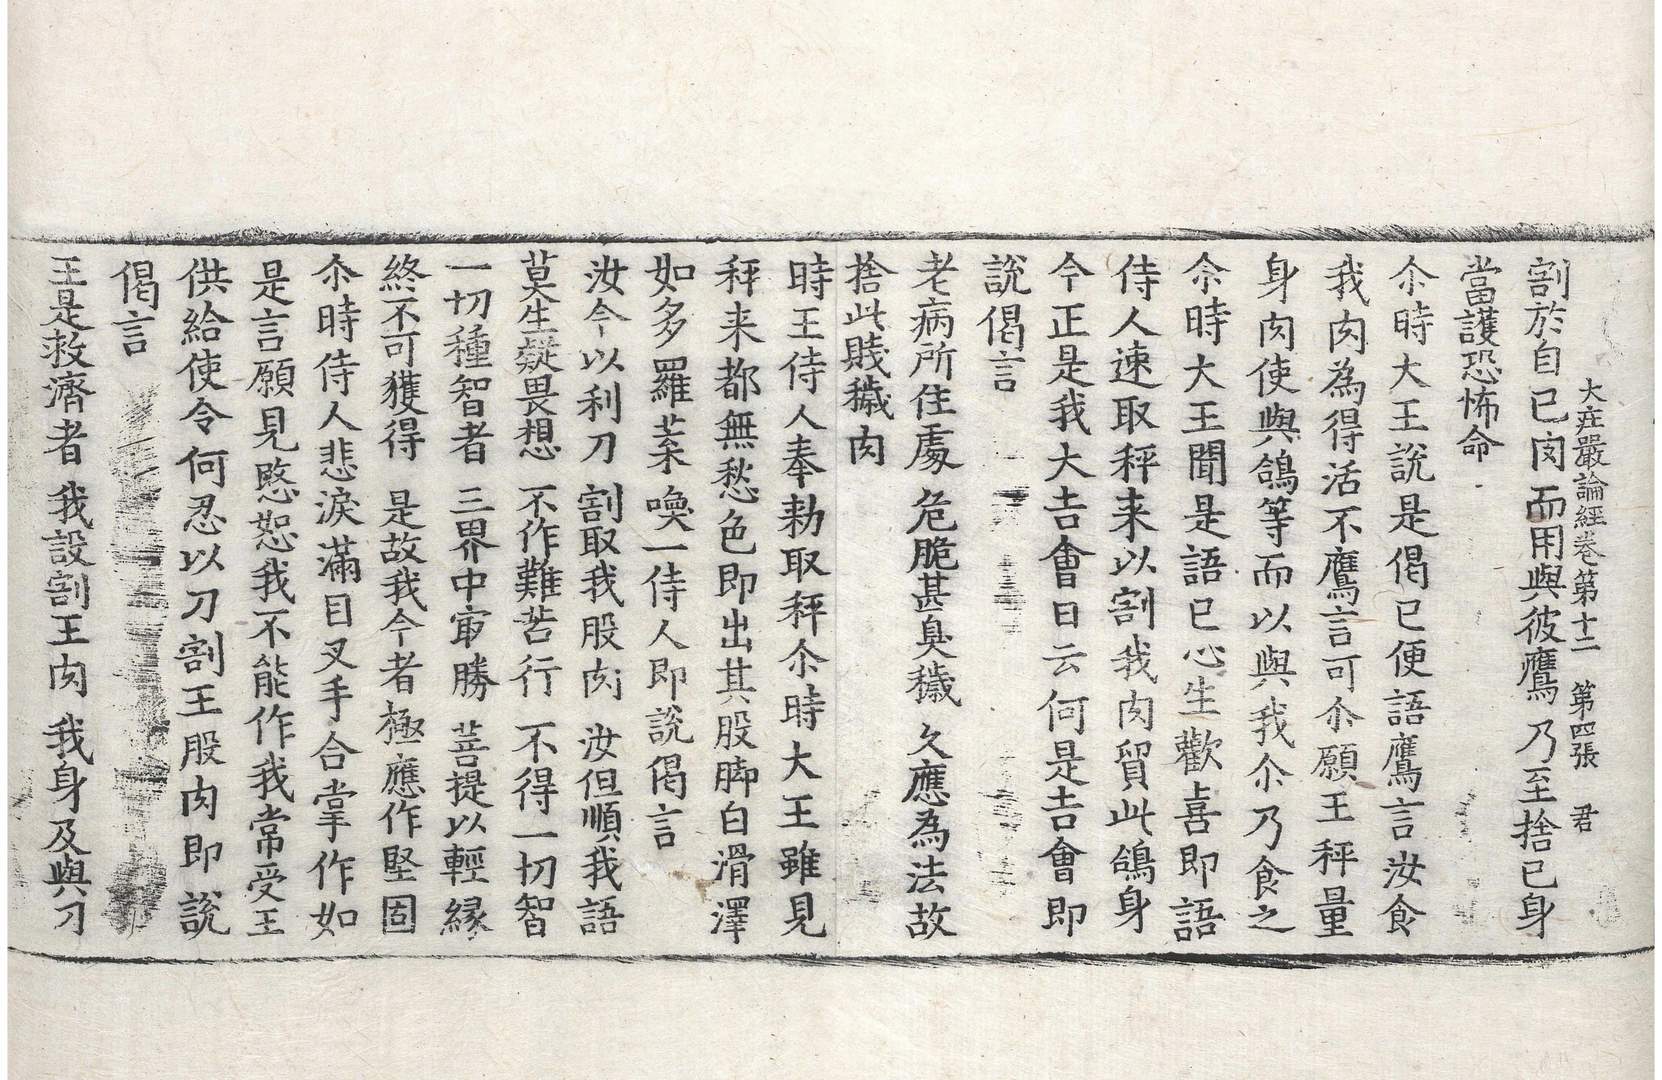 大庄嚴論經卷第十二 第四張 君
割於自已肉而用與彼鷹 乃至捨已身
當護恐怖命
尒時大王說是偈已便語鷹言汝食
我肉為得活不鷹言可尒願王秤量
身肉使與鴿等而以與我尒乃食之
尒時大王聞是語已心生歡喜即語
侍人速取秤来以割我肉貿此鴿身
今正是我大吉會日云何是吉會即
說偈言
老病所住處 危脆甚臭穢 久應為法故
捨此賤穢肉
時王侍人奉勑取秤尒時大王雖見
秤来都無愁色即出其股脚白滑澤
如多羅葉喚一侍人即說偈言
汝今以利刀 割取我股肉 汝但順我語
莫生疑畏想 不作難苦行 不得一切智
一切種智者 三界中㝡勝 菩提以輕縁
終不可獲得 是故我今者 極應作堅固
尒時侍人悲淚滿目叉手合掌作如
是言願見愍恕我不能作我常受王
供給使令何忍以刀割王股肉即說
偈言
王是救濟者 我設割王肉 我身及與刀